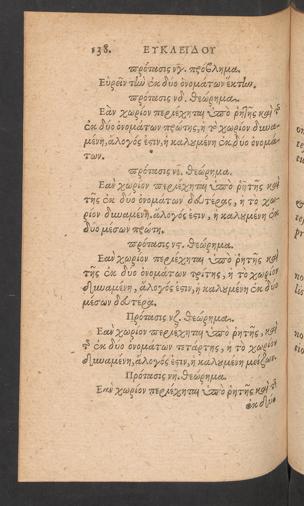 138. ΕΥΚΛΕΙΔΟΥ
πρότασις νγ. πρόβλημα.
Εὑρεῖν τὴν ἐκ δύο ὀνομάτων ἕκτην.
πρότασις νδ. θεώρημα.
Εὰν χωρίον περιέχηται ὑπὸ ῥητῆς καὶ τ
ἐκ δύο ὀνομάτων πρώτης, ἡ τὸ χωρίον δυνα-
μένη, ἄλογός ἐστιν, ἡ καλουμένη ἐκ δύο ὀνομά-
των.
πρότασις νε. θεώρημα.
Εὰν χωρίον περιέχηται ὑπὸ ῥητῆς καὶ
τῆς ἐκ δύο ὀνομάτων δευτέρας, ἡ τὸ χω-
ρίον δυναμένη, ἄλογός ἐστιν, ἡ καλουμένη ἐκ
δύο μέσων πρώτη.
πρότασις νς. θεώρημα.
Εὰν χωρίον περιέχηται ὑπὸ ῥητῆς καὶ
τῆς ἐκ δύο ὀνομάτων τρίτης, ἡ τὸ χωρίον
δυναμένη, ἄλογός ἐστιν, ἡ καλουμένη ἐκ δύο
μέσων δευτέρα.
Πρότασις νζ. θεώρημα.
Εὰν χωρίον περιέχηται ὑπὸ ῥητῆς, καὶ
τ ἐκ δύο ὀνομάτων τετάρτης, ἡ τὸ χωρίον
δυναμένη, ἄλογός ἐστιν, ἡ καλουμένη μείζων.
Πρότασις νη. θεώρημα.
Εὰν χωρίον περιέχηται ὑπὸ ῥητῆς καὶ τ
ἐκ δύο